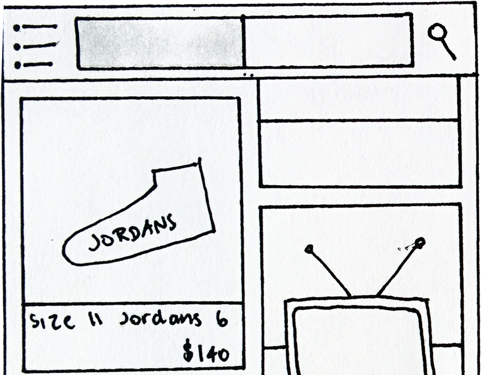 JORDANS
Size 11 Jordans 6
$140